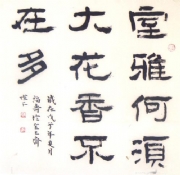 室雅何须
大花香不
在多
歲在戊子年夏月